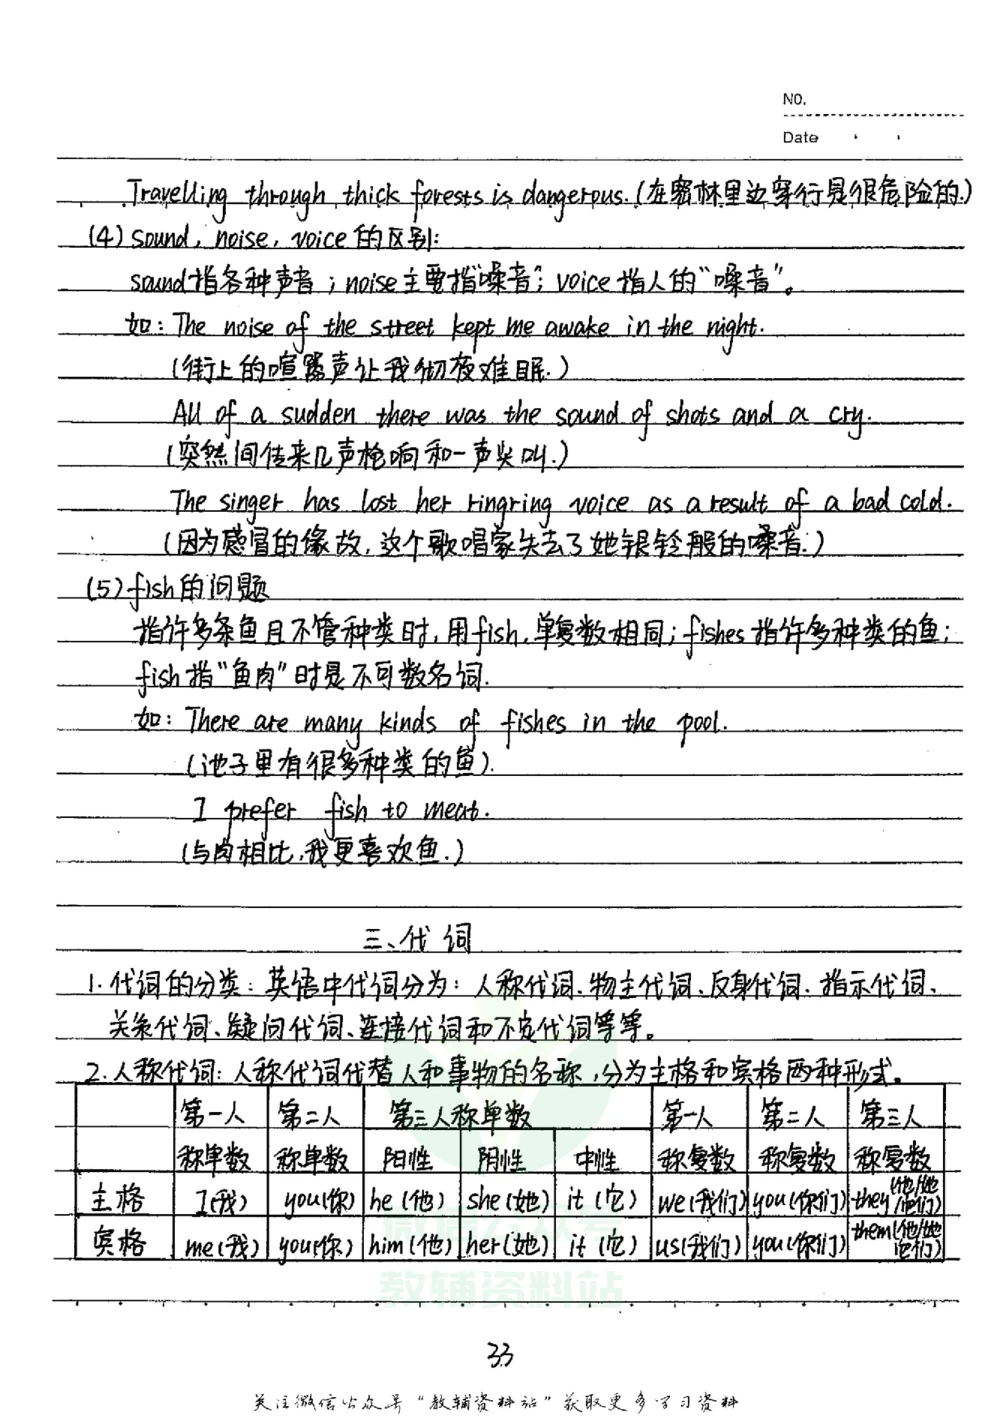 NO.
Date
Travelling through thick forests is dangerous.(在密林里边穿行是很危险的.)
(4) sound, noise, voice 的区别:
sound指各种声音;noise主要指"噪音";voice 指人的"嗓音"。
如: The noise of the street kept me awake in the night.
(街上的喧嚣声让我彻夜难眠.)
All of a sudden there was the sound of shots and a cry.
(突然间传来几声枪响和一声尖叫.)
The singer has lost her ringring voice as a result of a bad cold.
(因为感冒的缘故,这个歌唱家失去了她银铃般的嗓音.)
(5) fish的问题
指许多条鱼且不管种类时,用fish,单复数相同;fishes指许多种类的鱼;
fish指"鱼肉"时是不可数名词.
如: There are many kinds of fishes in the pool.
(池子里有很多种类的鱼).
I prefer fish to meat.
(与肉相比,我更喜欢鱼.)
三、代词
1.代词的分类:英语中代词分为:人称代词、物主代词、反身代词、指示代词、
关系代词、疑问代词、连接代词和不定代词等等。
2.人称代词:人称代词代替人和事物的名称,分为主格和宾格两种形式。
第一人 第二人 第三人称单数 第一人 第二人 第三人
称单数 称单数 阳性 阴性 中性 称复数 称复数 称复数
主格 I(我) you(你) he(他) she(她) it(它) we(我们) you(你们) they(他/她/它们)
宾格 me(我) you(你) him(他) her(她) it(它) us(我们) you(你们) them(他/她/它们)
微信公众号
教辅资料站
33
关注微信公众号"教辅资料站"获取更多学习资料